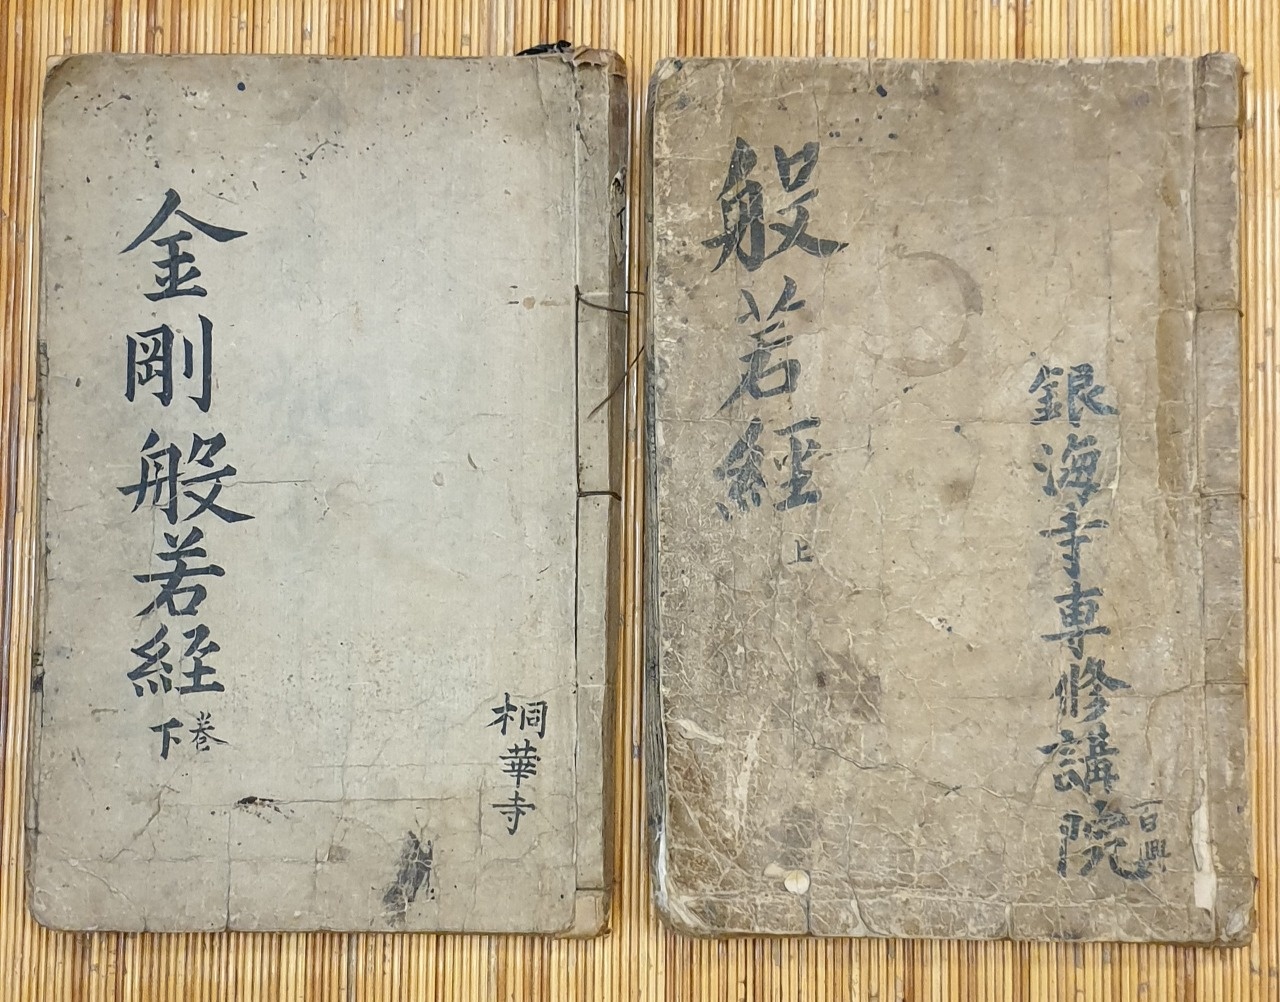 金剛般若経
下卷
桐華寺
般若經
上
銀海寺專修講院